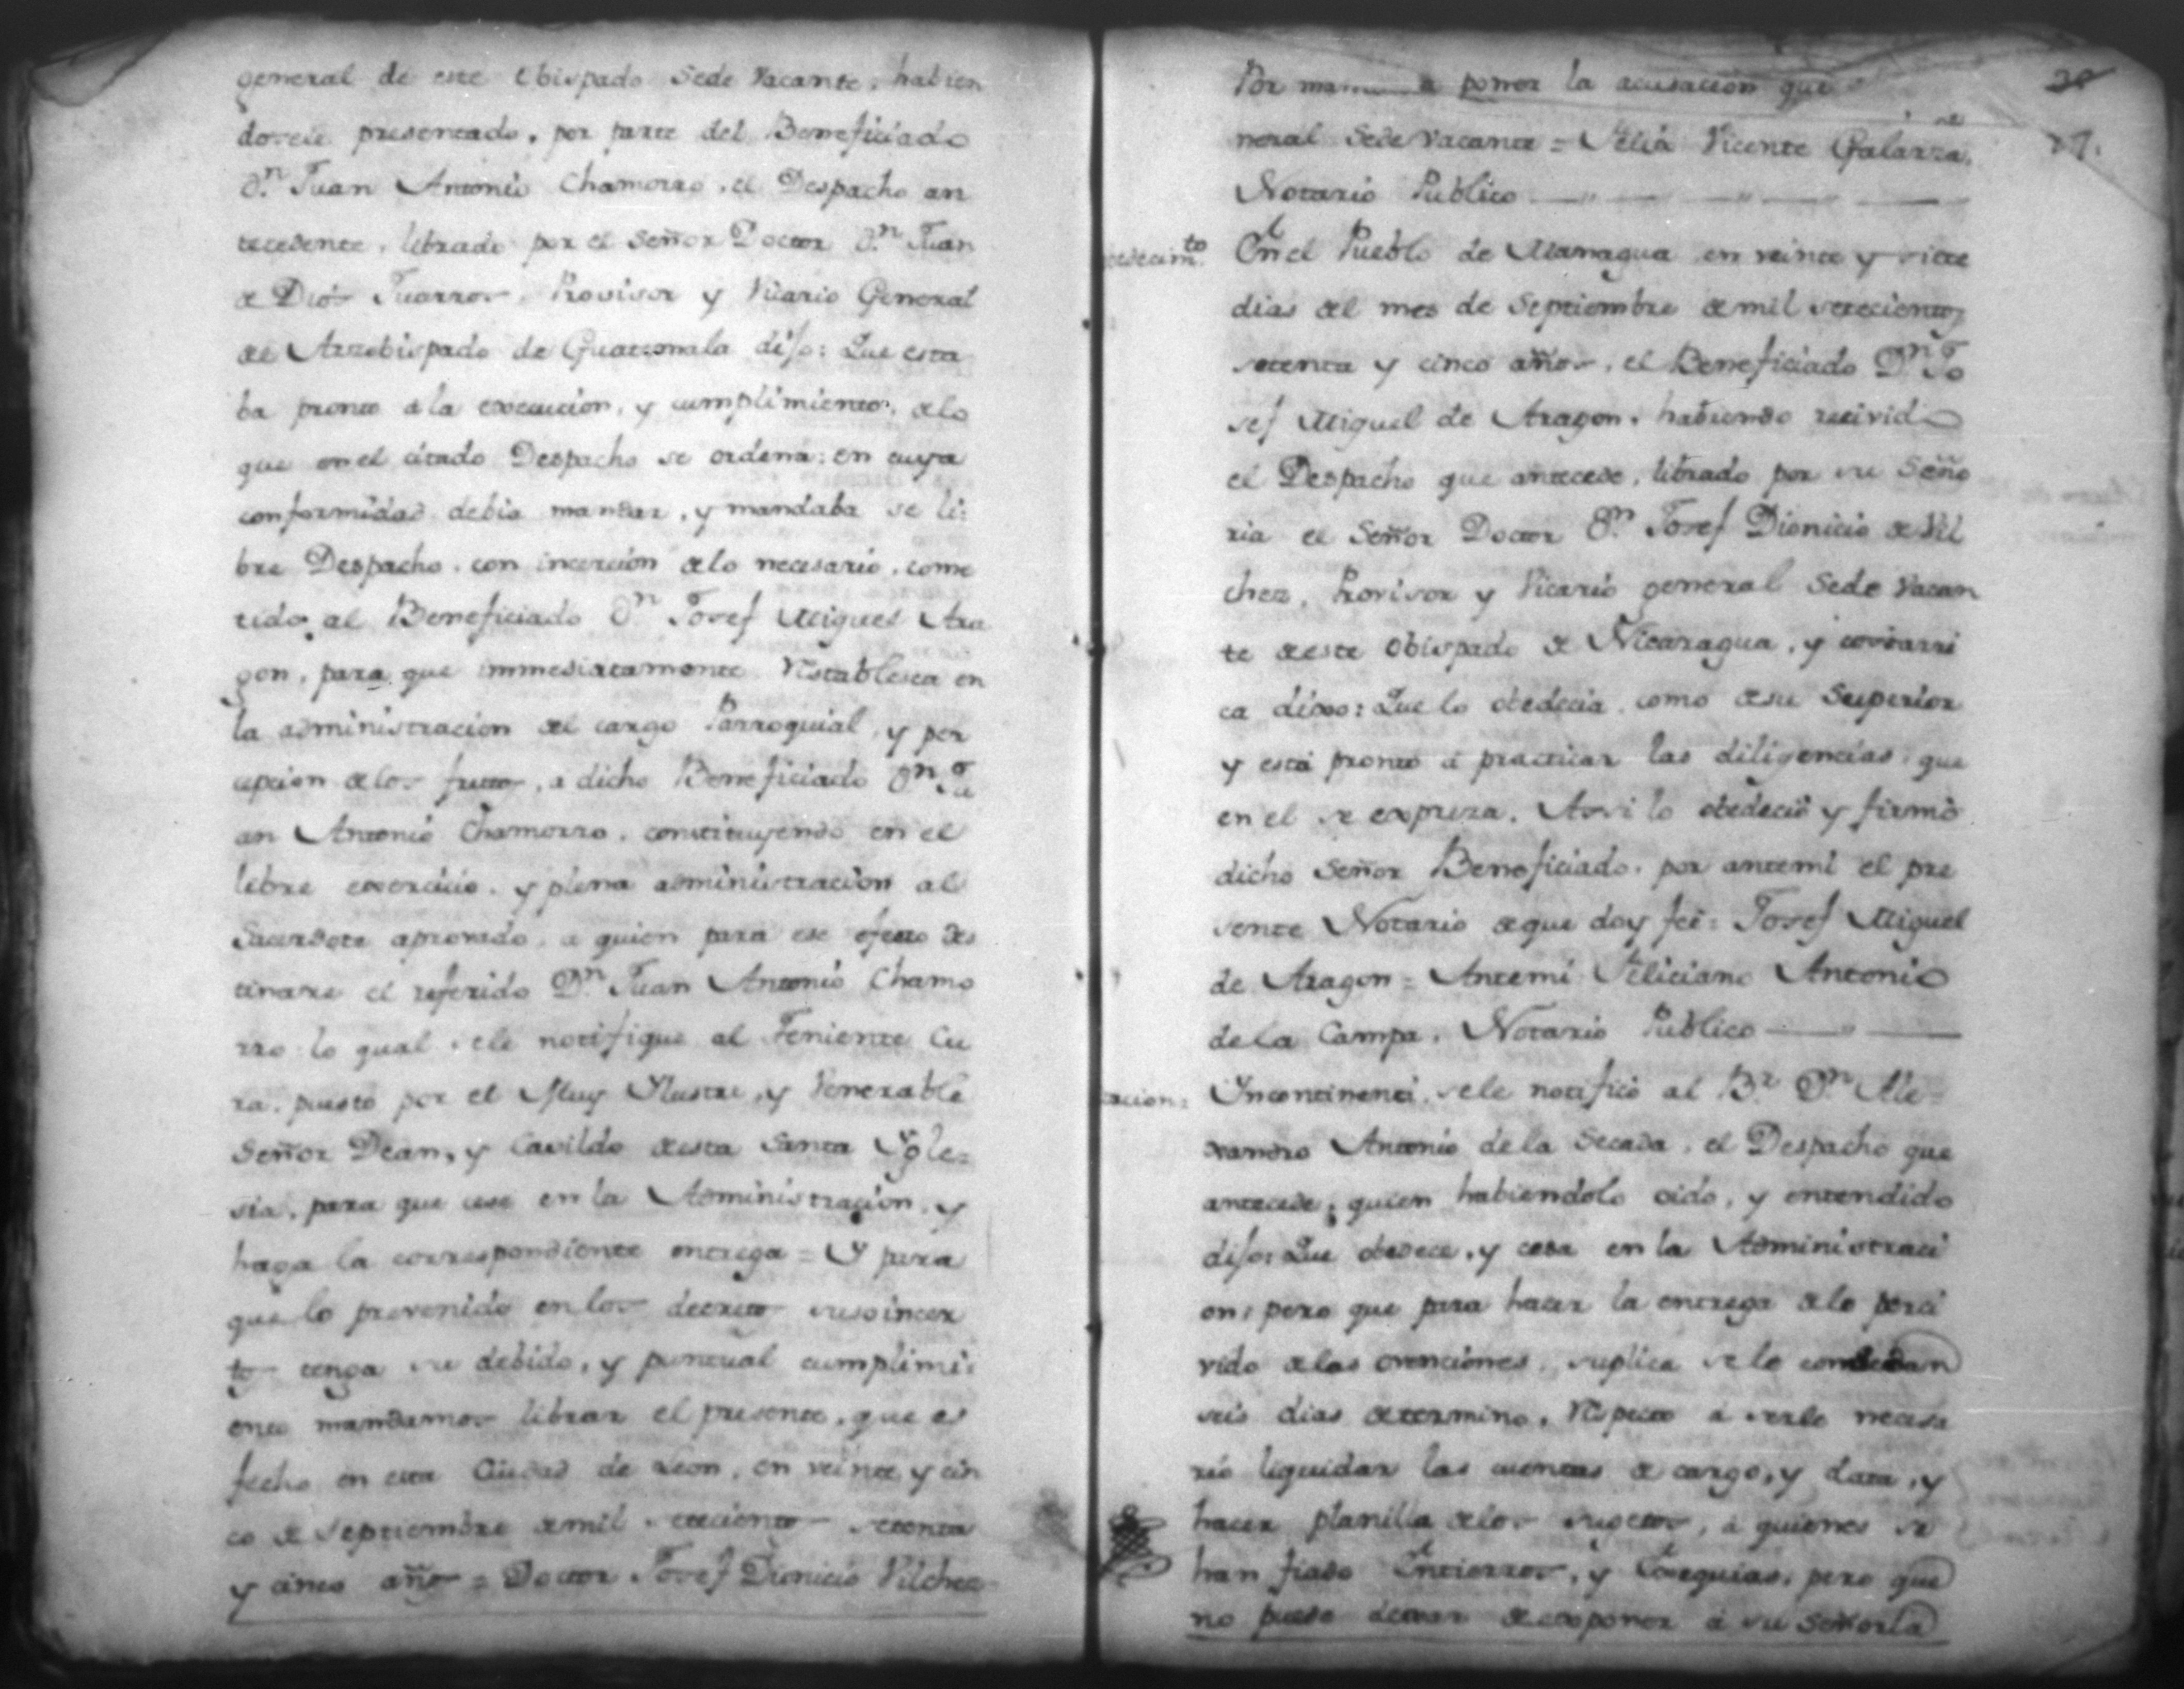 general de este Obispado Sede Vacante, habien
dosele presentado, por parte del Beneficiado
Dn. Juan Antonio Chamorro, el Despacho an
tecedente, librado por el Señor Doctor Dn. Juan
de Dios Juarros, Provisor y Vicario General
del Arzobispado de Guatemala dijo: Que esta
ba pronto a la execucion, y cumplimiento, de lo
que en el citado Despacho se ordena: en cuya
conformidad debia mandar, y mandaba se li:
bre Despacho, con incercion de lo necesario, come
tido al Beneficiado Dn. Josef Miguel Ara
gon, para que immediatamente Restablesca en
la administracion del cargo Parroquial, y per
cepcion de los frutos, a dicho Beneficiado Dn. Ju
an Antonio Chamorro, constituyendo en el
libre exercicio, y plena administracion al
Sacerdote aprovado, a quien para ese efecto des
tinare el referido Dn. Juan Antonio Chamo
rro lo qual se le notifique al Teniente Cu
ra, puesto por el Muy Ylustre, y Venerable
Señor Dean, y Cavildo de esta Santa Ygle=
sia, para que cese en la Administracion, y
haga la correspondiente entrega = Y para
que lo prevenido en los decretos susoincer
tos tenga su debido, y puntual cumplimi:
ento mandamos librar el presente, que es
fecho en esta Ciudad de Leon, en veinte y cin
co de Septiembre de mil setecientos setenta
y cinco años = Doctor Josef Dionicio Vilchez
Por a poner la acusacion que
30
neral Sede Vacante = Felix Vicente Galarza,
27.
Notario Publico
edecimto.
En el Pueblo de Managua en veinte y siete
dias del mes de Septiembre de mil setecientos
setenta y cinco años, el Beneficiado Dn. Jo
sef Miguel de Aragon, habiendo recivido
el Despacho que antecede, librado por su Seño
ria el Señor Doctor Dn. Josef Dionicio de Vil
chez, Provisor y Vicario general Sede Vacan
te de este Obispado de Nicaragua, y Costarri
ca dixo: Que lo obedecia como de su Superior
y está pronto á practicar las diligencias, que
en el se expresa. Assi lo obedeció y firmó
dicho Señor Beneficiado, por antemi el pre
sente Notario de que doy feé = Josef Miguel
de Aragon = Antemi Feliciano Antonio
de la Campa, Notario Publico
cacion =
Yncontinenti, se le notificó al Br. Dn. Ale=
xandro Antonio de la Secada, el Despacho que
antecede; quien habiendolo oido, y entendido
dijo: Que obedece, y cesa en la Administraci
on; pero que para hacer la entrega de lo perci
vido de las ovenciones, suplica se le concedan
seis dias de termino, Respecto á serle necesa
rio liquidar las cuentas de cargo, y data, y
hacer planilla de los sugetos, á quienes se
han fiado Entierros, y Exequias, pero que
no puede dexar de exponer á su Señoria